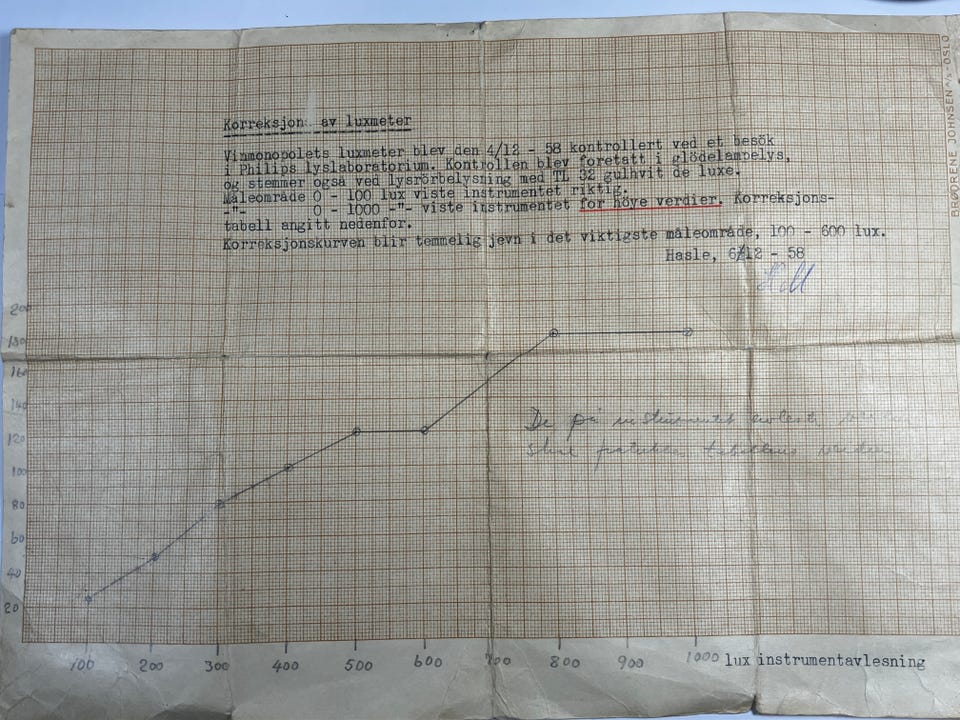 BRØDRENE JOHNSEN A/S - OSLO
Korreksjon av luxmeter
Vinmonopolets luxmeter blev den 4/12 - 58 kontrollert ved et besök
i Philips lyslaboratorium. Kontrollen blev foretatt i glödelampelys,
og stemmer også ved lysrörbelysning med TL 32 gulhvit de luxe.
Måleområde 0 - 100 lux viste instrumentet riktig.
-"- 0 - 1000 -"- viste instrumentet for höye verdier. Korreksjons-
tabell angitt nedenfor.
Korreksjonskurven blir temmelig jevn i det viktigste måleområde, 100 - 600 lux.
Hasle, 6/12 - 58
200
180
160
140
120
100
80
60
40
20
De på instrumentet
skal
100 200 300 400 500 600 700 800 900 1000 lux instrumentavlesning